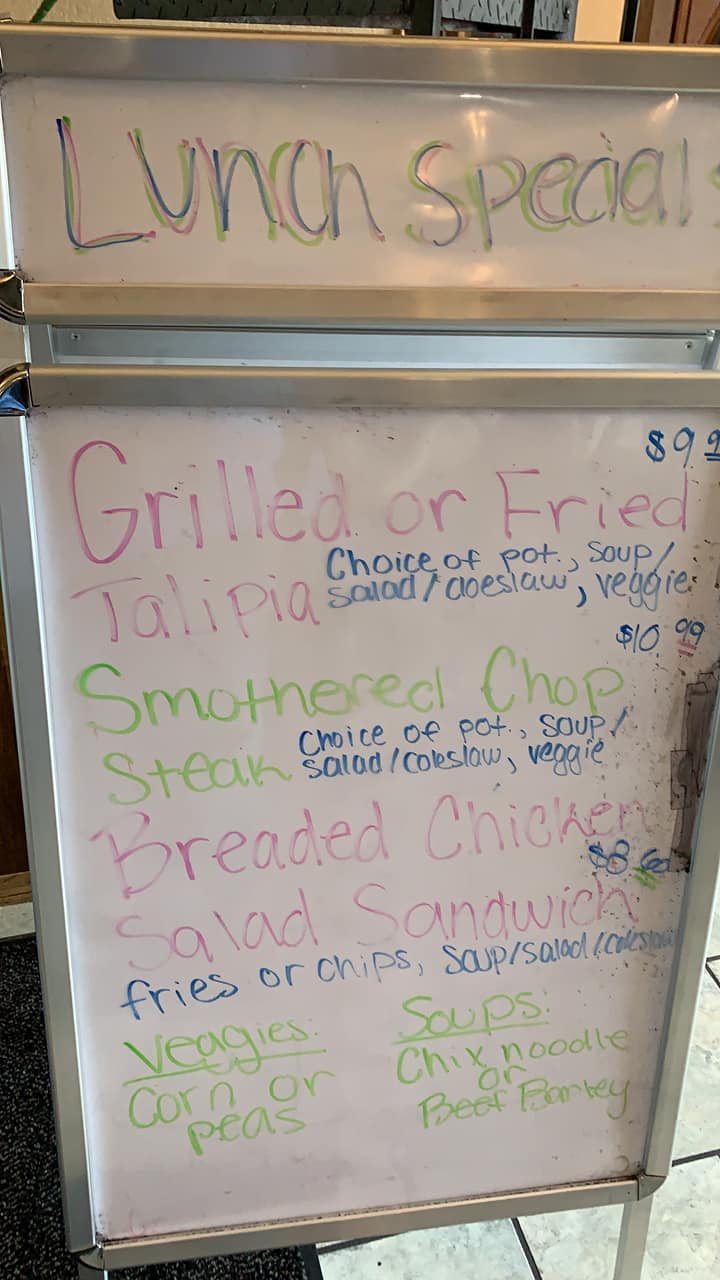 Lunch Specials
$9.9
Grilled or Fried
Talipia Choice of pot., soup/
salad/cloeslaw, veggie
$10.99
Smothered Chop
Steak Choice of pot., soup/
salad/coleslaw, veggie
Breaded Chicken
Salad Sandwich
fries or chips, soup/salad/coleslaw
Veggies: Soups:
Corn or Chix noodle
peas or
Beef Barley